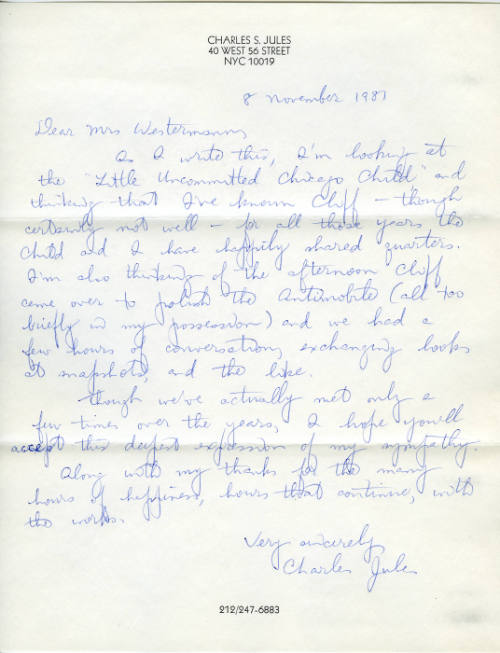 CHARLES S. JULES
40 WEST 56 STREET
NYC 10019
8 November 1981
Dear Mrs Westermann,
As I write this, I'm looking at
the "Little Uncommitted Chicago Child" and
thinking that I've known Cliff — though
certainly not well — for all those years the
Child and I have happily shared quarters.
I'm also thinking of the afternoon Cliff
came over to polish the Antimobile (all too
briefly in my possession) and we had a
few hours of conversation, exchanging looks
at snapshots, and the like.
Though we've actually met only a
few times over the years, I hope you'll
accept this deepest expression of my sympathy.
Along with my thanks for the many
hours of happiness, hours that continue, with
the works.
Very sincerely,
Charles Jules
212/247-6883